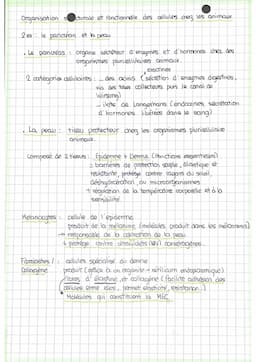 Organisation structurale et fonctionnelle des cellules chez les animaux
2 ex : le pancréas et la peau
• Le pancréas : organe sécréteur d'enzymes et d'hormones chez des
organismes pluricellulaires animaux.
exocrines
2 catégories cellulaires : - des acinis (sécrétion d'enzymes digestives,
via des tubes collecteurs puis le canal de
Wirsung)
- îlots de Langerhans (endocrines, sécrétation
d'hormones libérées dans le sang)
• La peau : tissu protecteur chez les organismes pluricellulaires
animaux.
composé de 2 tissus : Epiderme + Derme (fonctions essentielles)
= barrières de protection souple, élastique et
résistante, protège contre rayons du soleil,
déshydratation ou microorganismes
+ régulation de la température corporelle et à la
sensibilité
Mélanocytes : cellule de l'épiderme
produit de la mélanine (molécules produit dans les mélanomes)
→ responsable de la coloration de la peau
+ protège contre ultraviolets (UV) cancérogènes.
Fibroblastes / : cellules spécialisé du derme
Collagène produit (grâce à un organite → réticulum endoplasmique)
fibres d'élastine et collagène (facilite adhésion des
cellules entre elles, permet élasticité, résistance)
Molécules qui constituent la MEC